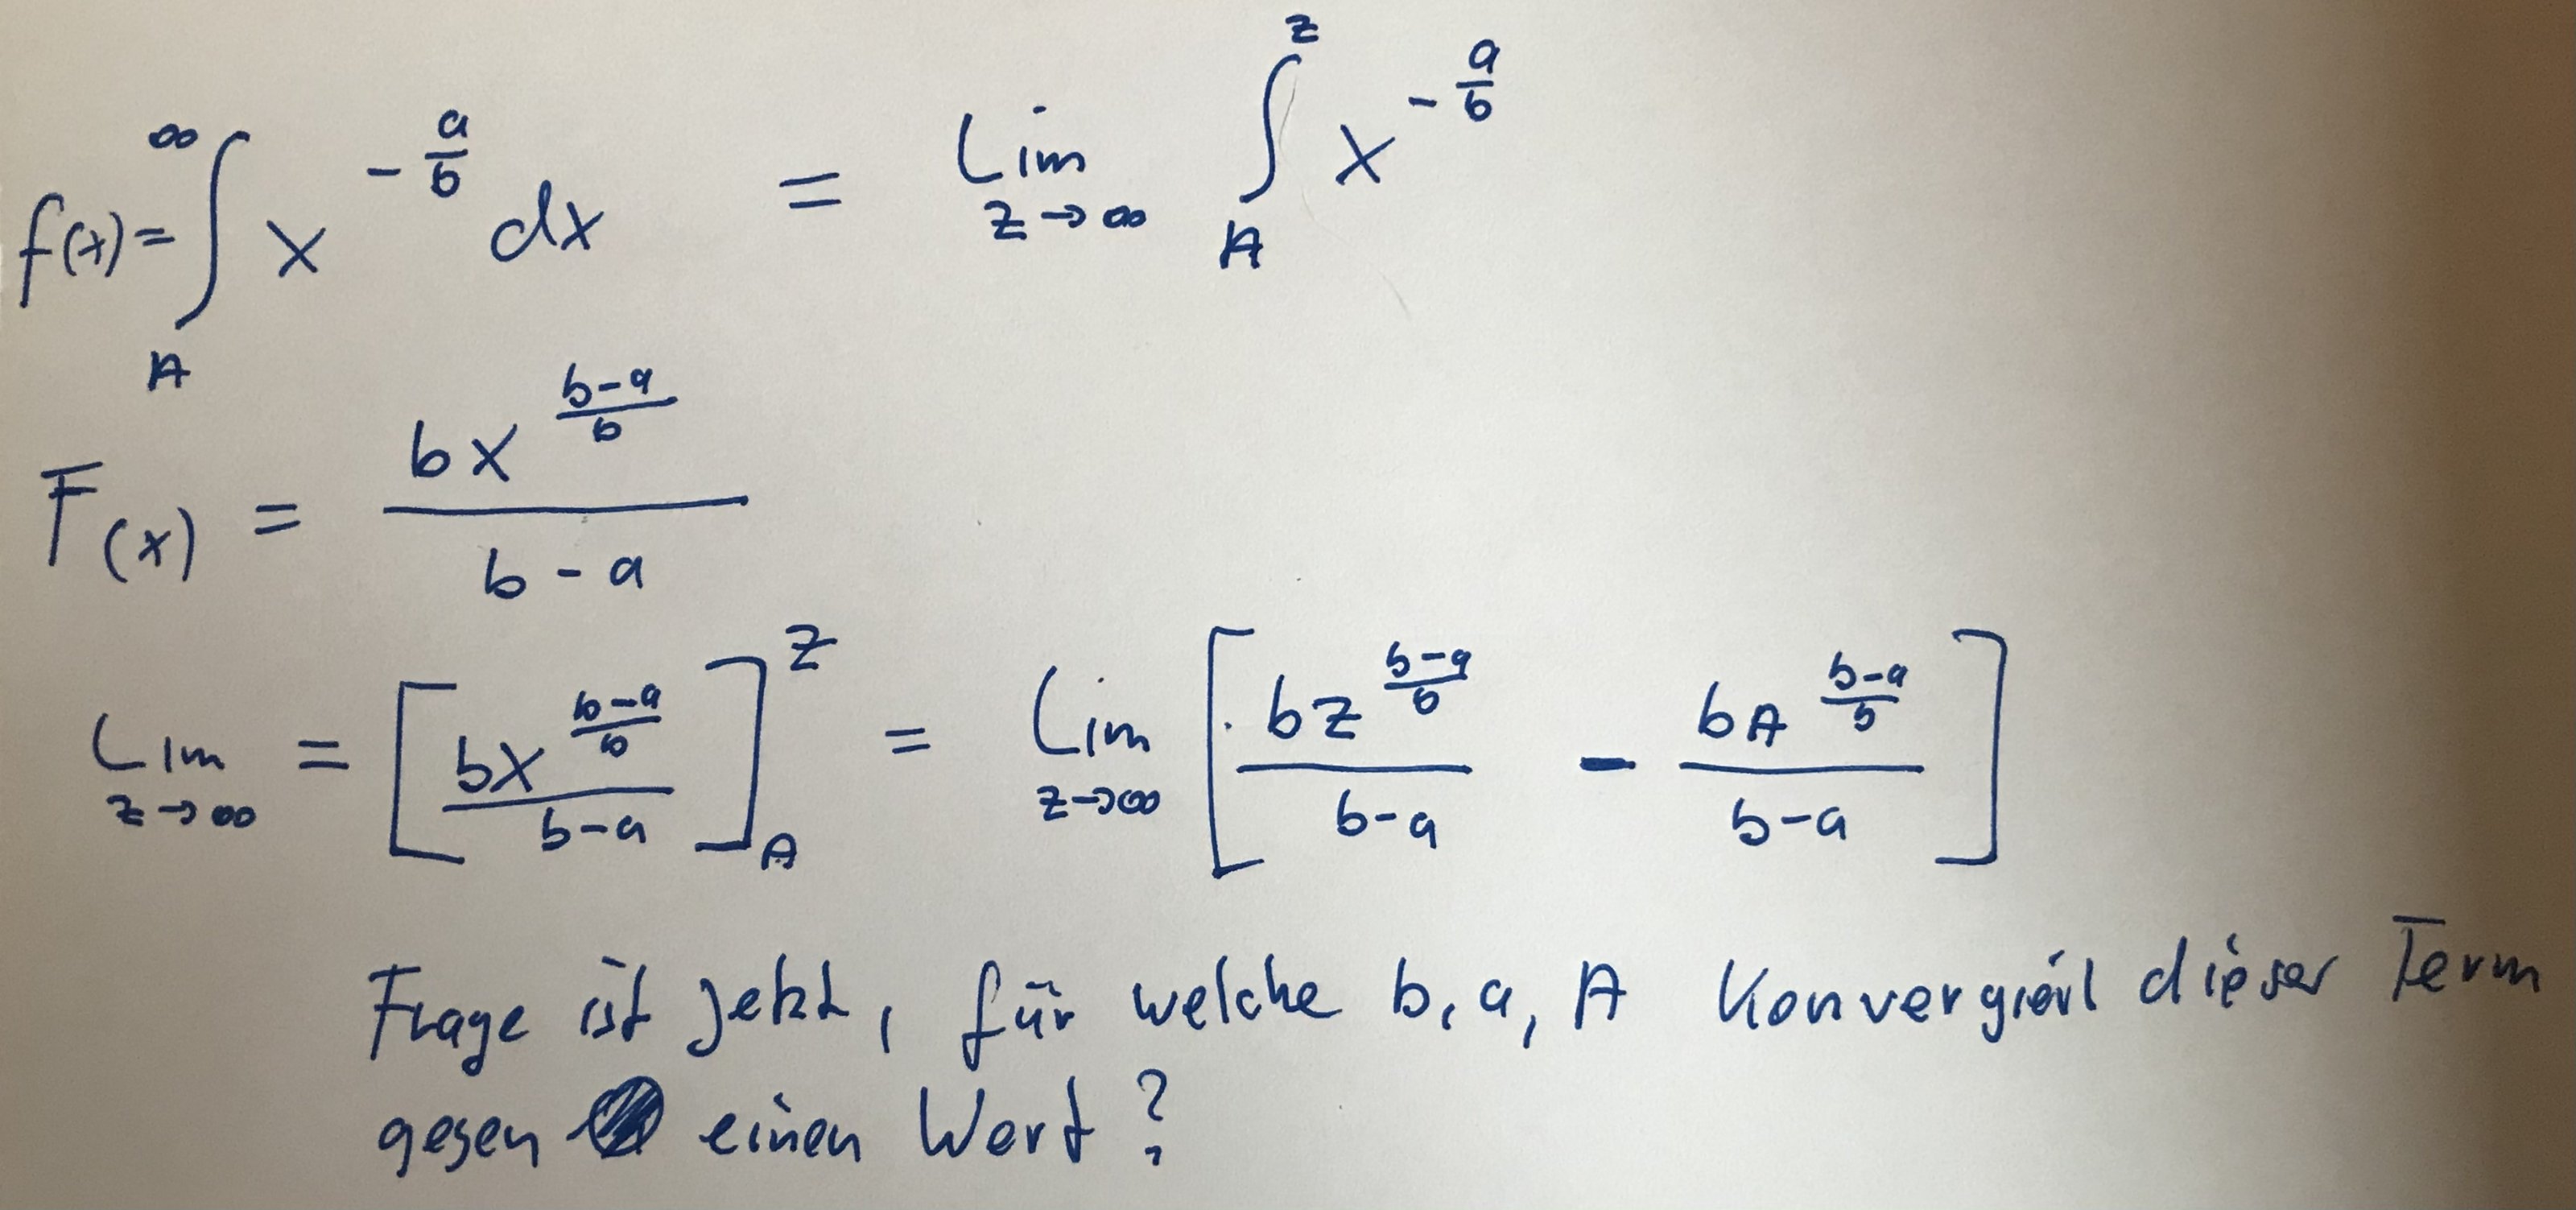 f(x) = ∫_A^∞ x^{-\frac{a}{b}} dx = Lim_{z→∞} ∫_A^z x^{-\frac{a}{b}}
F(x) = \frac{b x^{\frac{b-a}{b}}}{b-a}
Lim_{z→∞} = [\frac{bx^{\frac{b-a}{b}}}{b-a}]_A^z = Lim_{z→∞} [\frac{bz^{\frac{b-a}{b}}}{b-a} - \frac{bA^{\frac{b-a}{b}}}{b-a}]
Frage ist jetzt, für welche b, a, A Konvergiert dieser Term
gegen einen Wert?